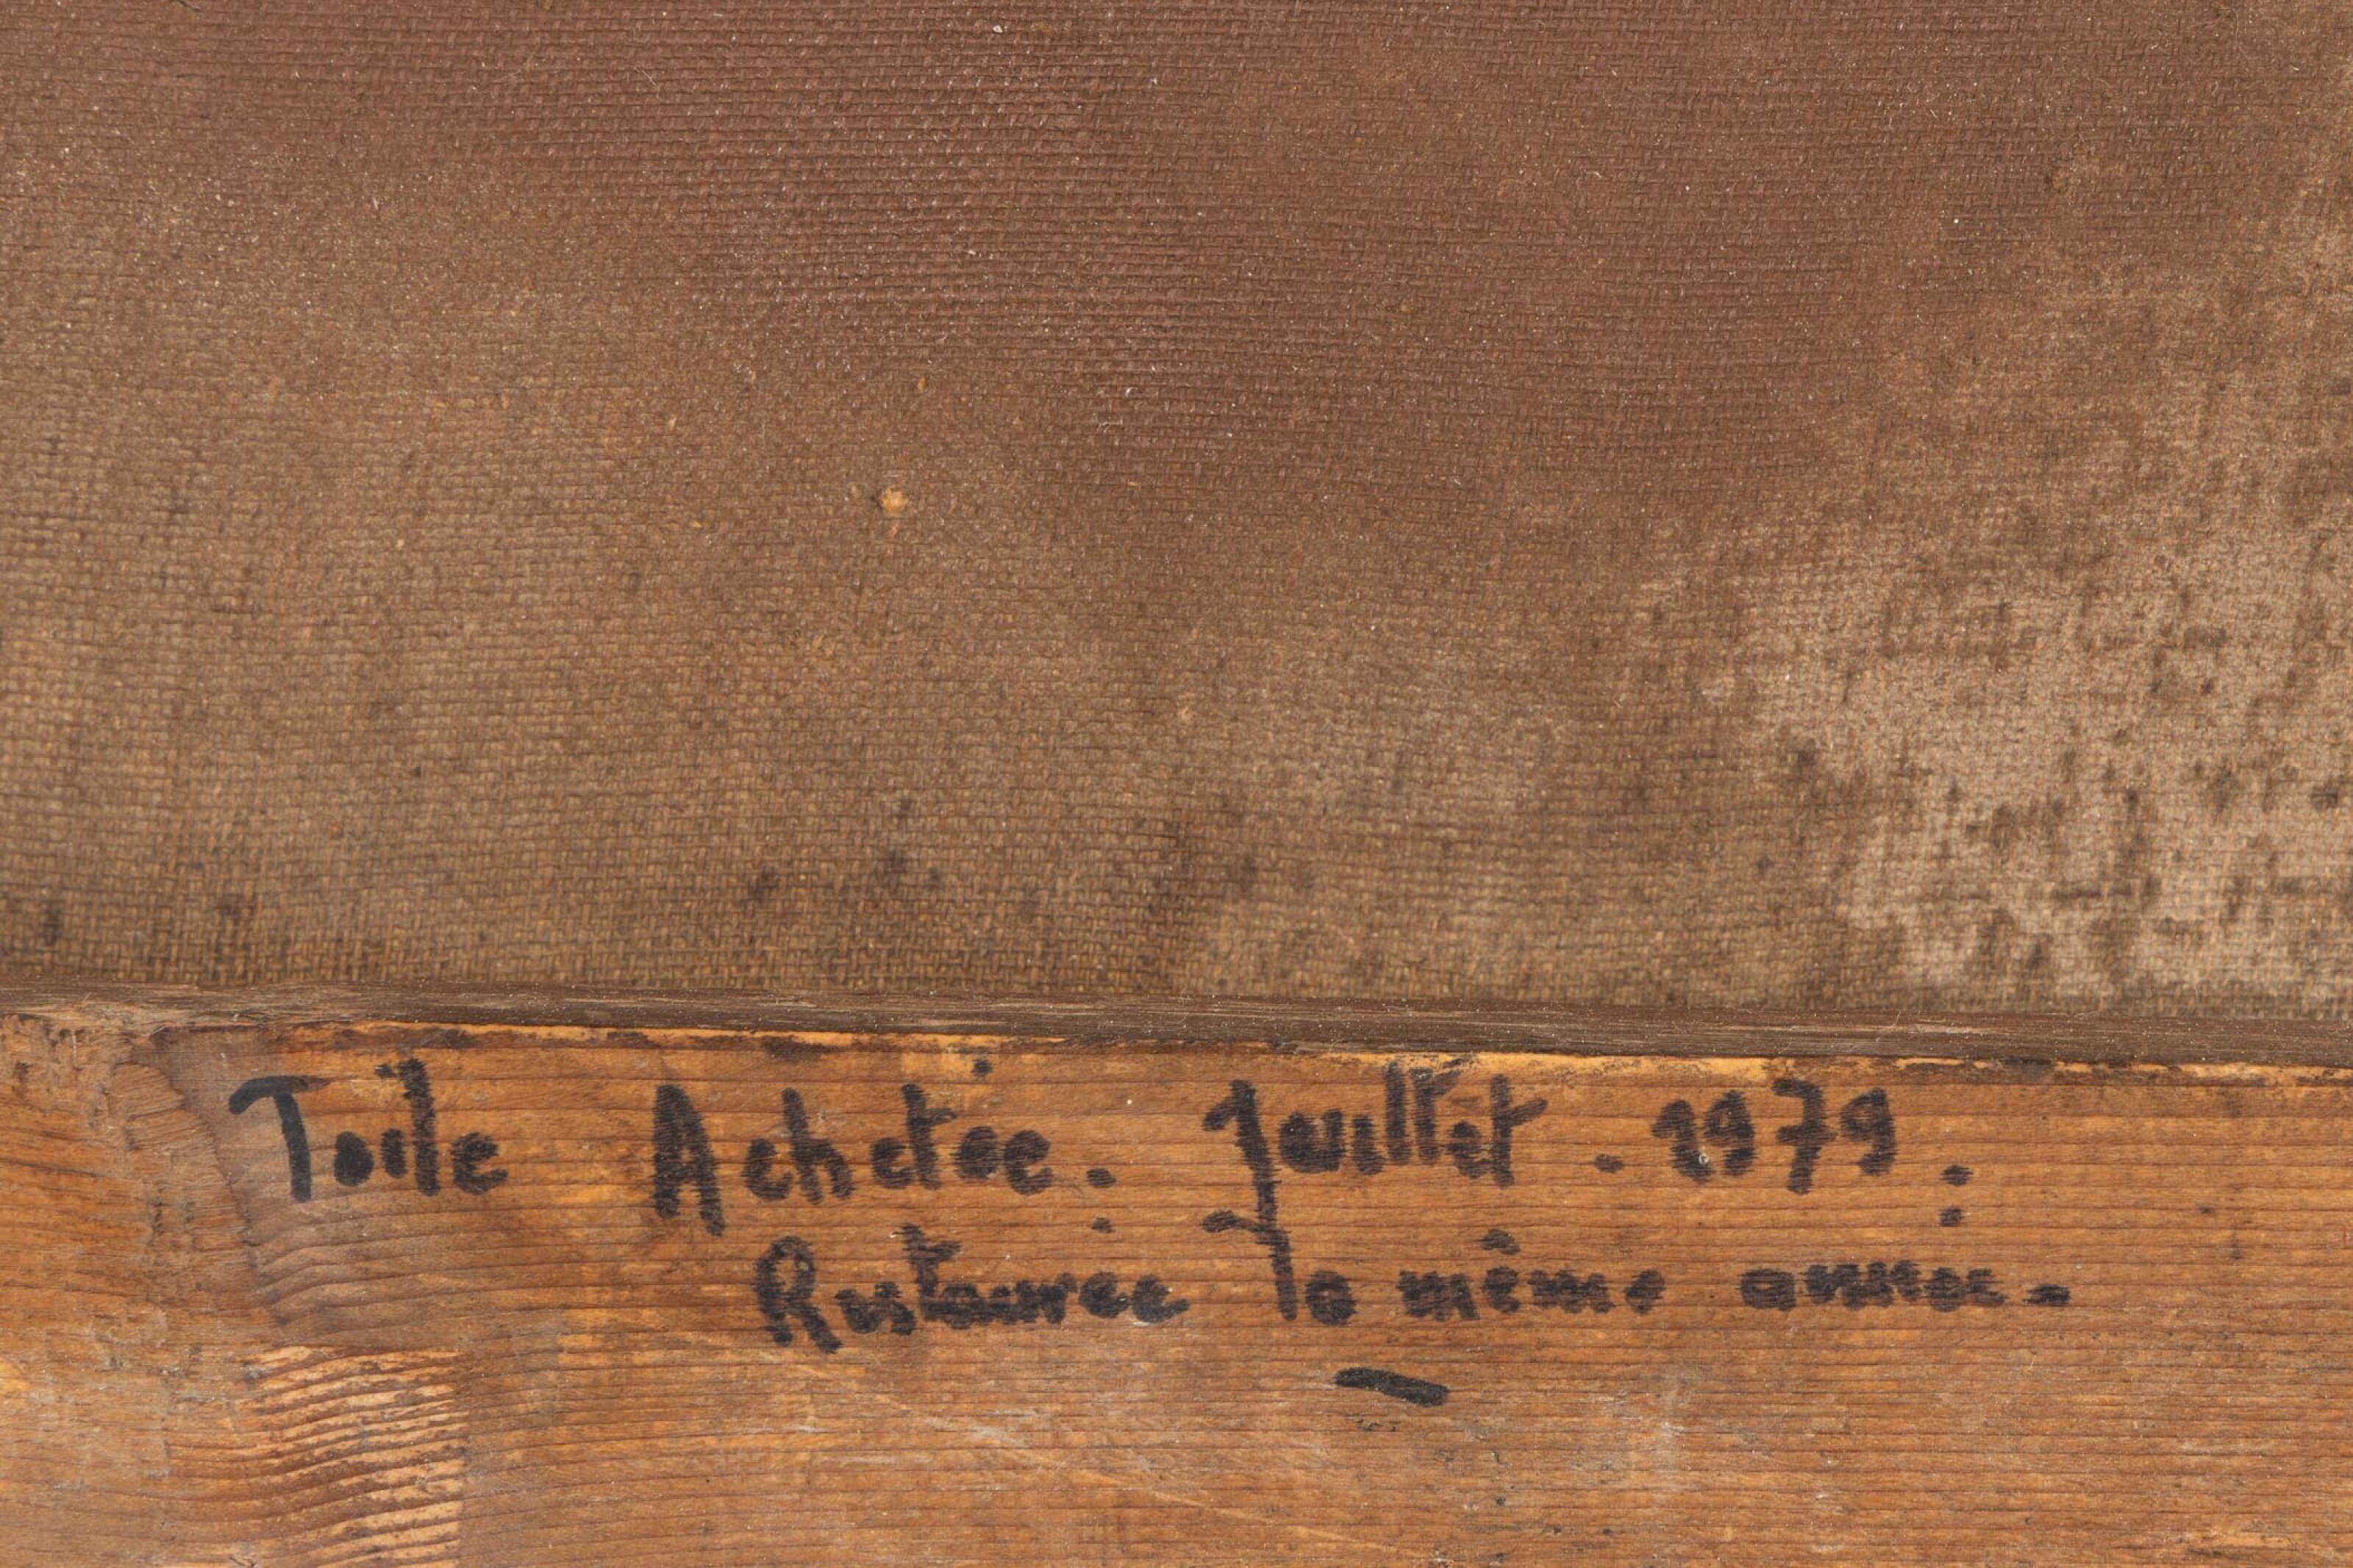 Toile Achetée. Juillet. 1979.
Restaurée la même année.